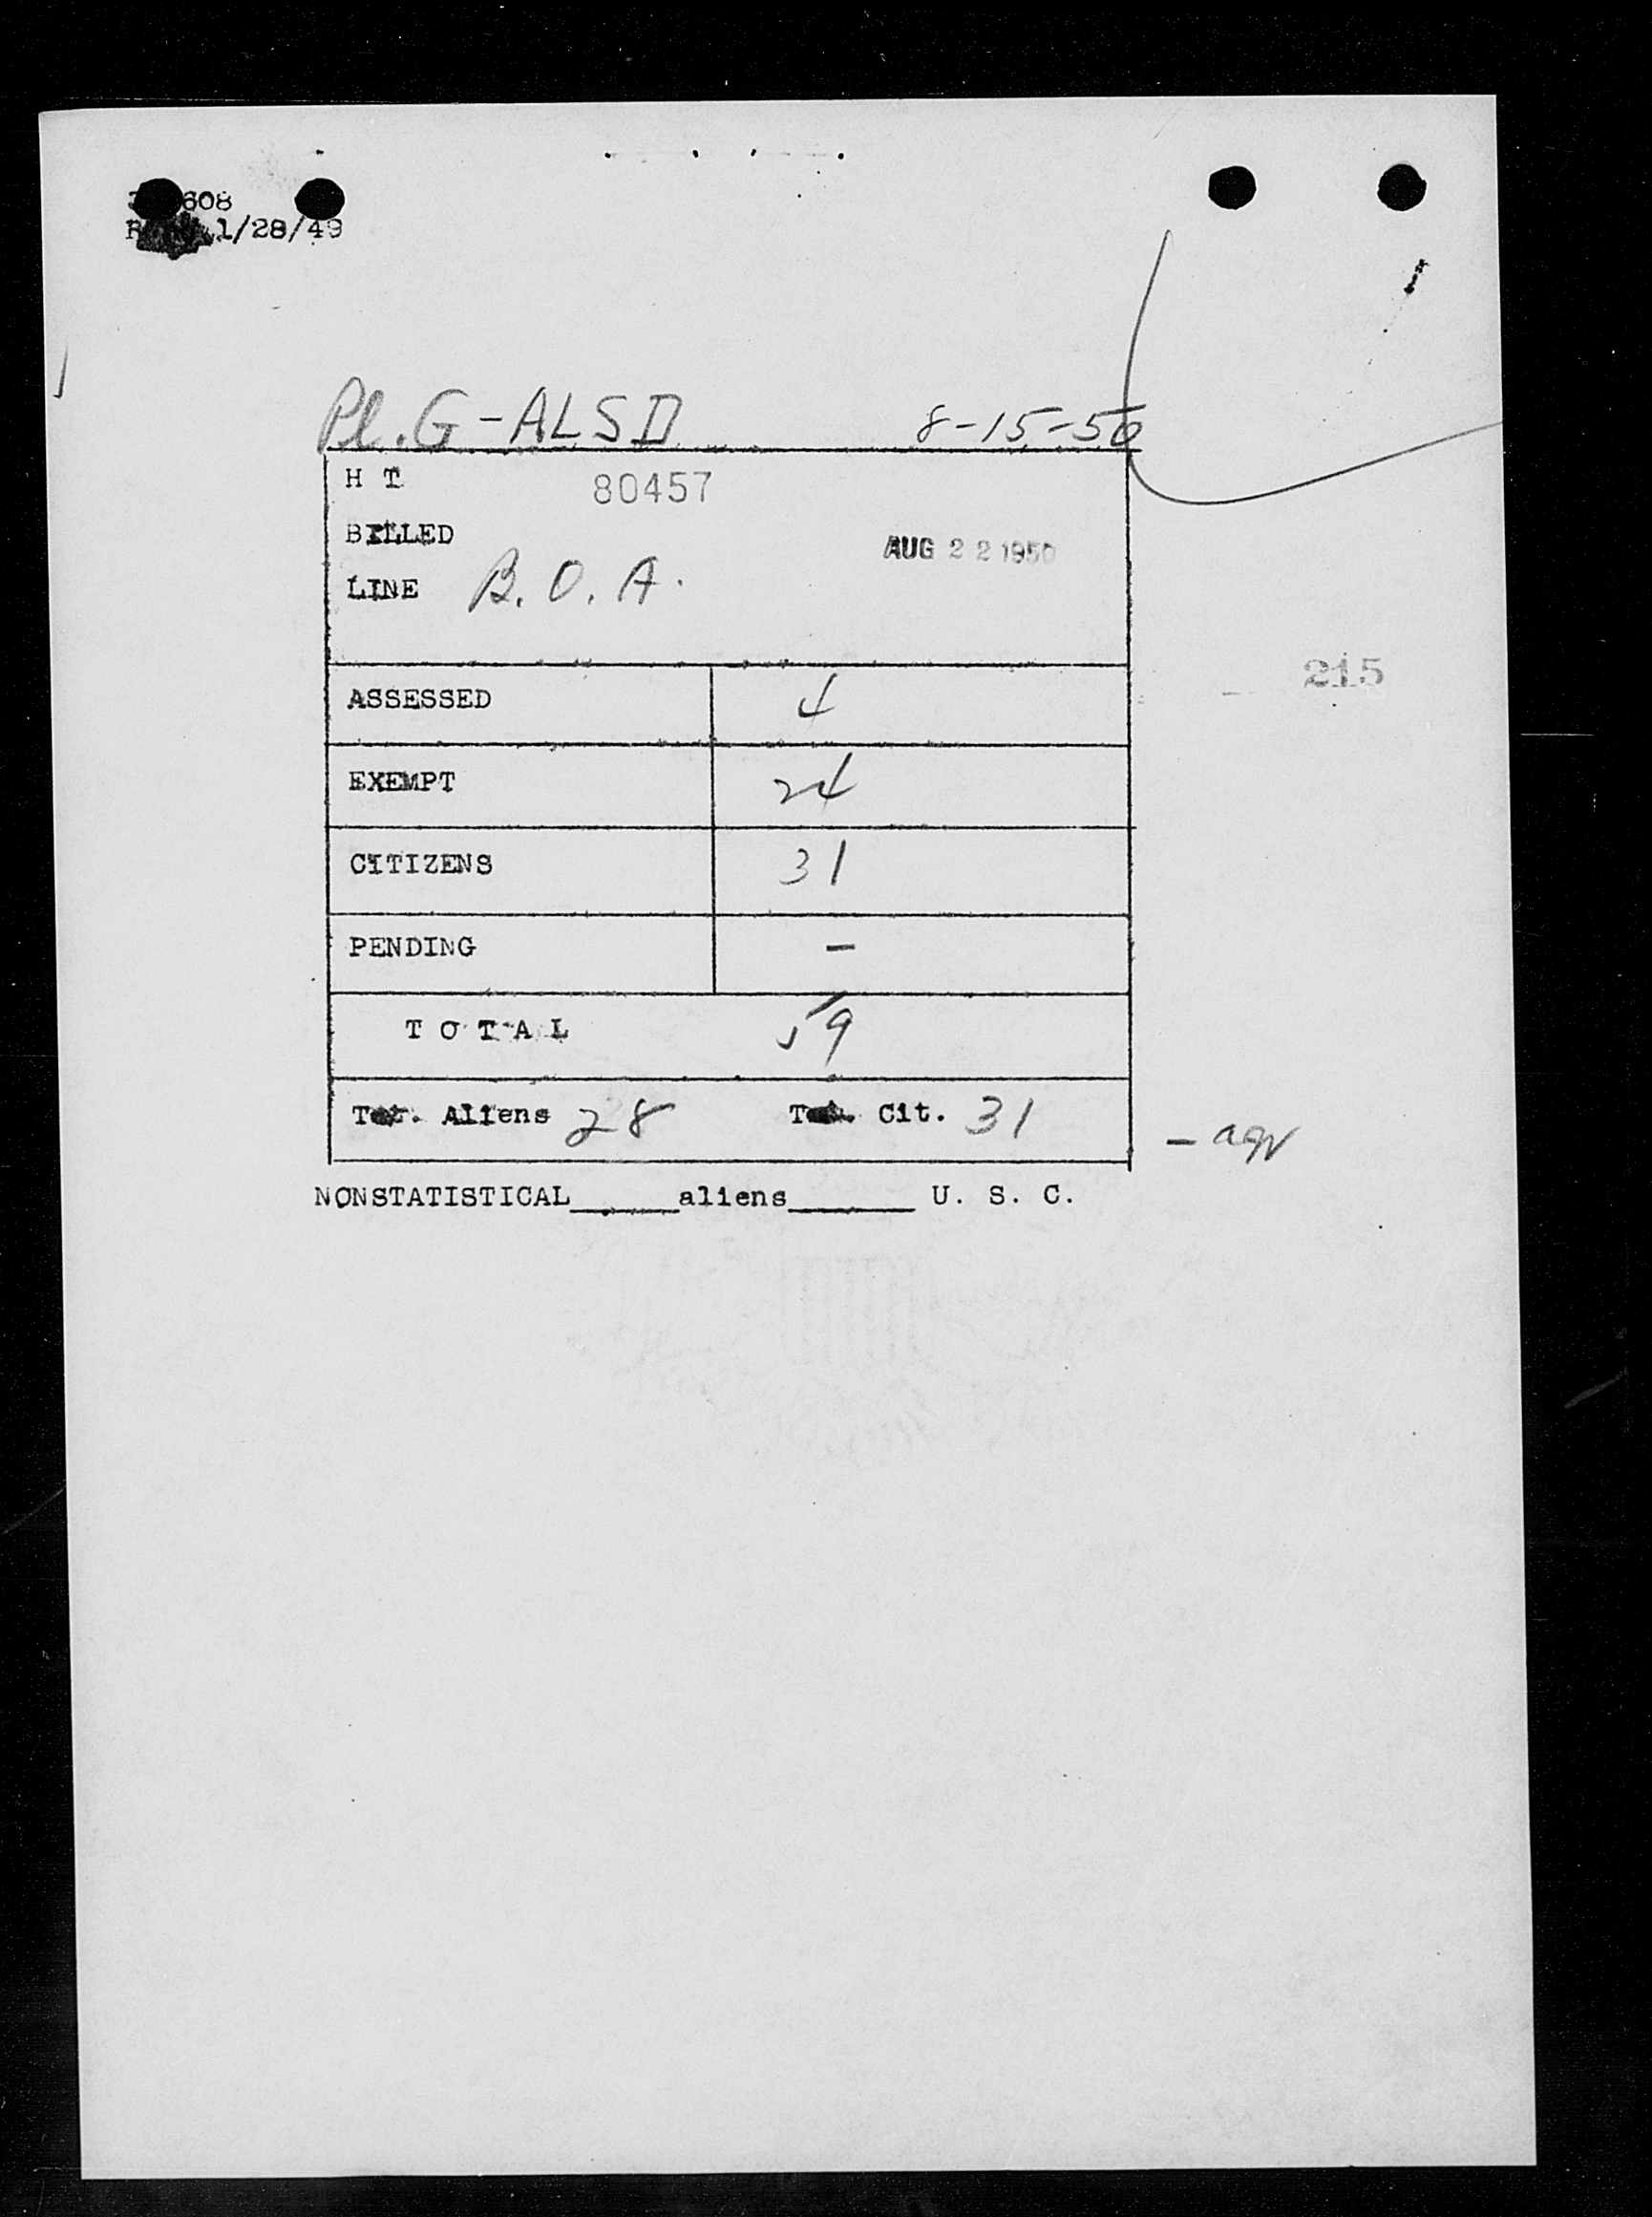 608
1/28/49
Pl. G-ALSD 8-15-50
H T 80457
BILLED AUG 22 1950
LINE B.O.A.
215
ASSESSED 4
EXEMPT 24
CITIZENS 31
PENDING -
TOTAL 59
Tot. Aliens 28 Tot. Cit. 31
NONSTATISTICAL______aliens_______ U. S. C.